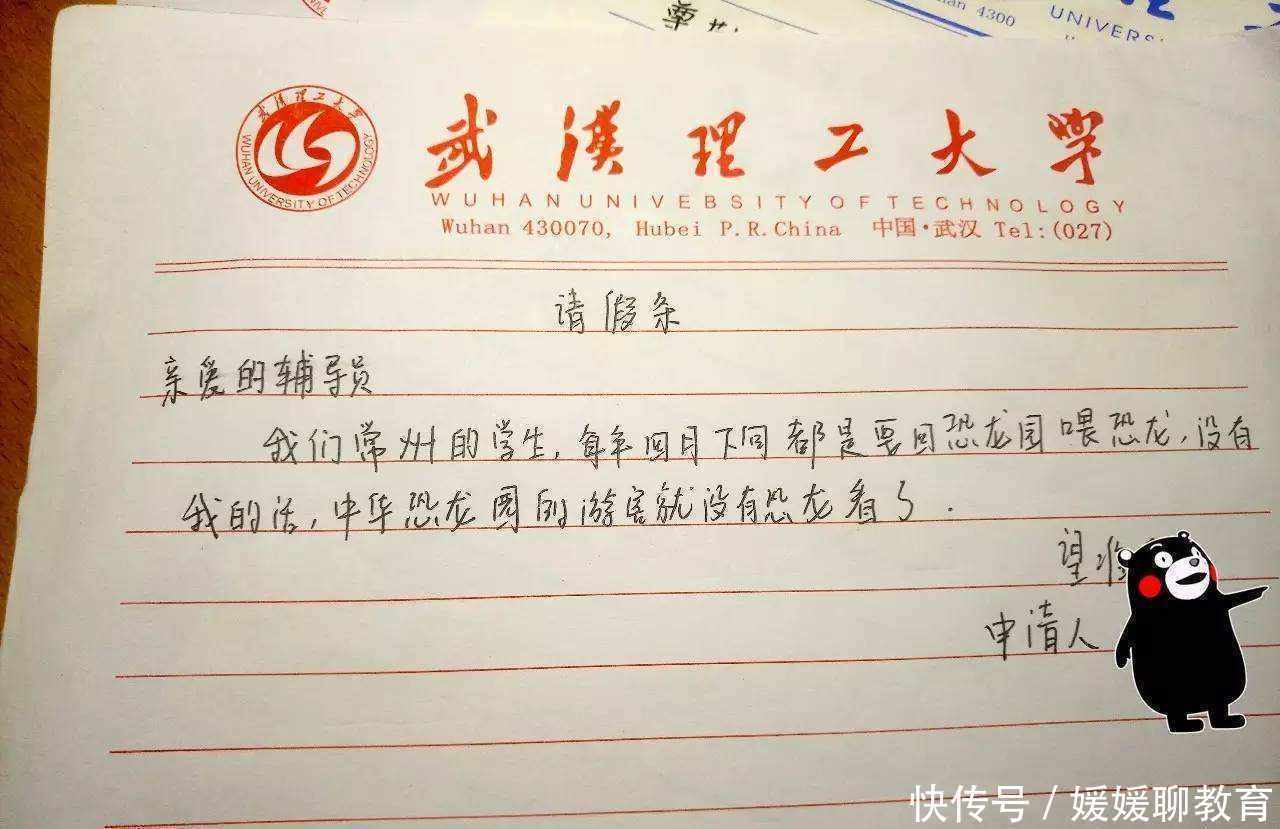 4300
UNIVERS
武漢理工大学
WUHAN UNIVERSITY OF TECHNOLOGY
武漢理工大学
WUHAN UNIVEBSITY OF TECHNOLOGY
Wuhan 430070, Hubei P.R.China 中国·武汉 Tel:(027)
请假条
亲爱的辅导员
我们常州的学生,每年四月下旬都是要回恐龙园喂恐龙,没有
我的话,中华恐龙园的游客就没有恐龙看了.
望准
申请人
快传号/媛媛聊教育